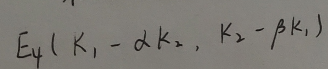 E₄(K₁ - αK₂, K₂ - βK₁)